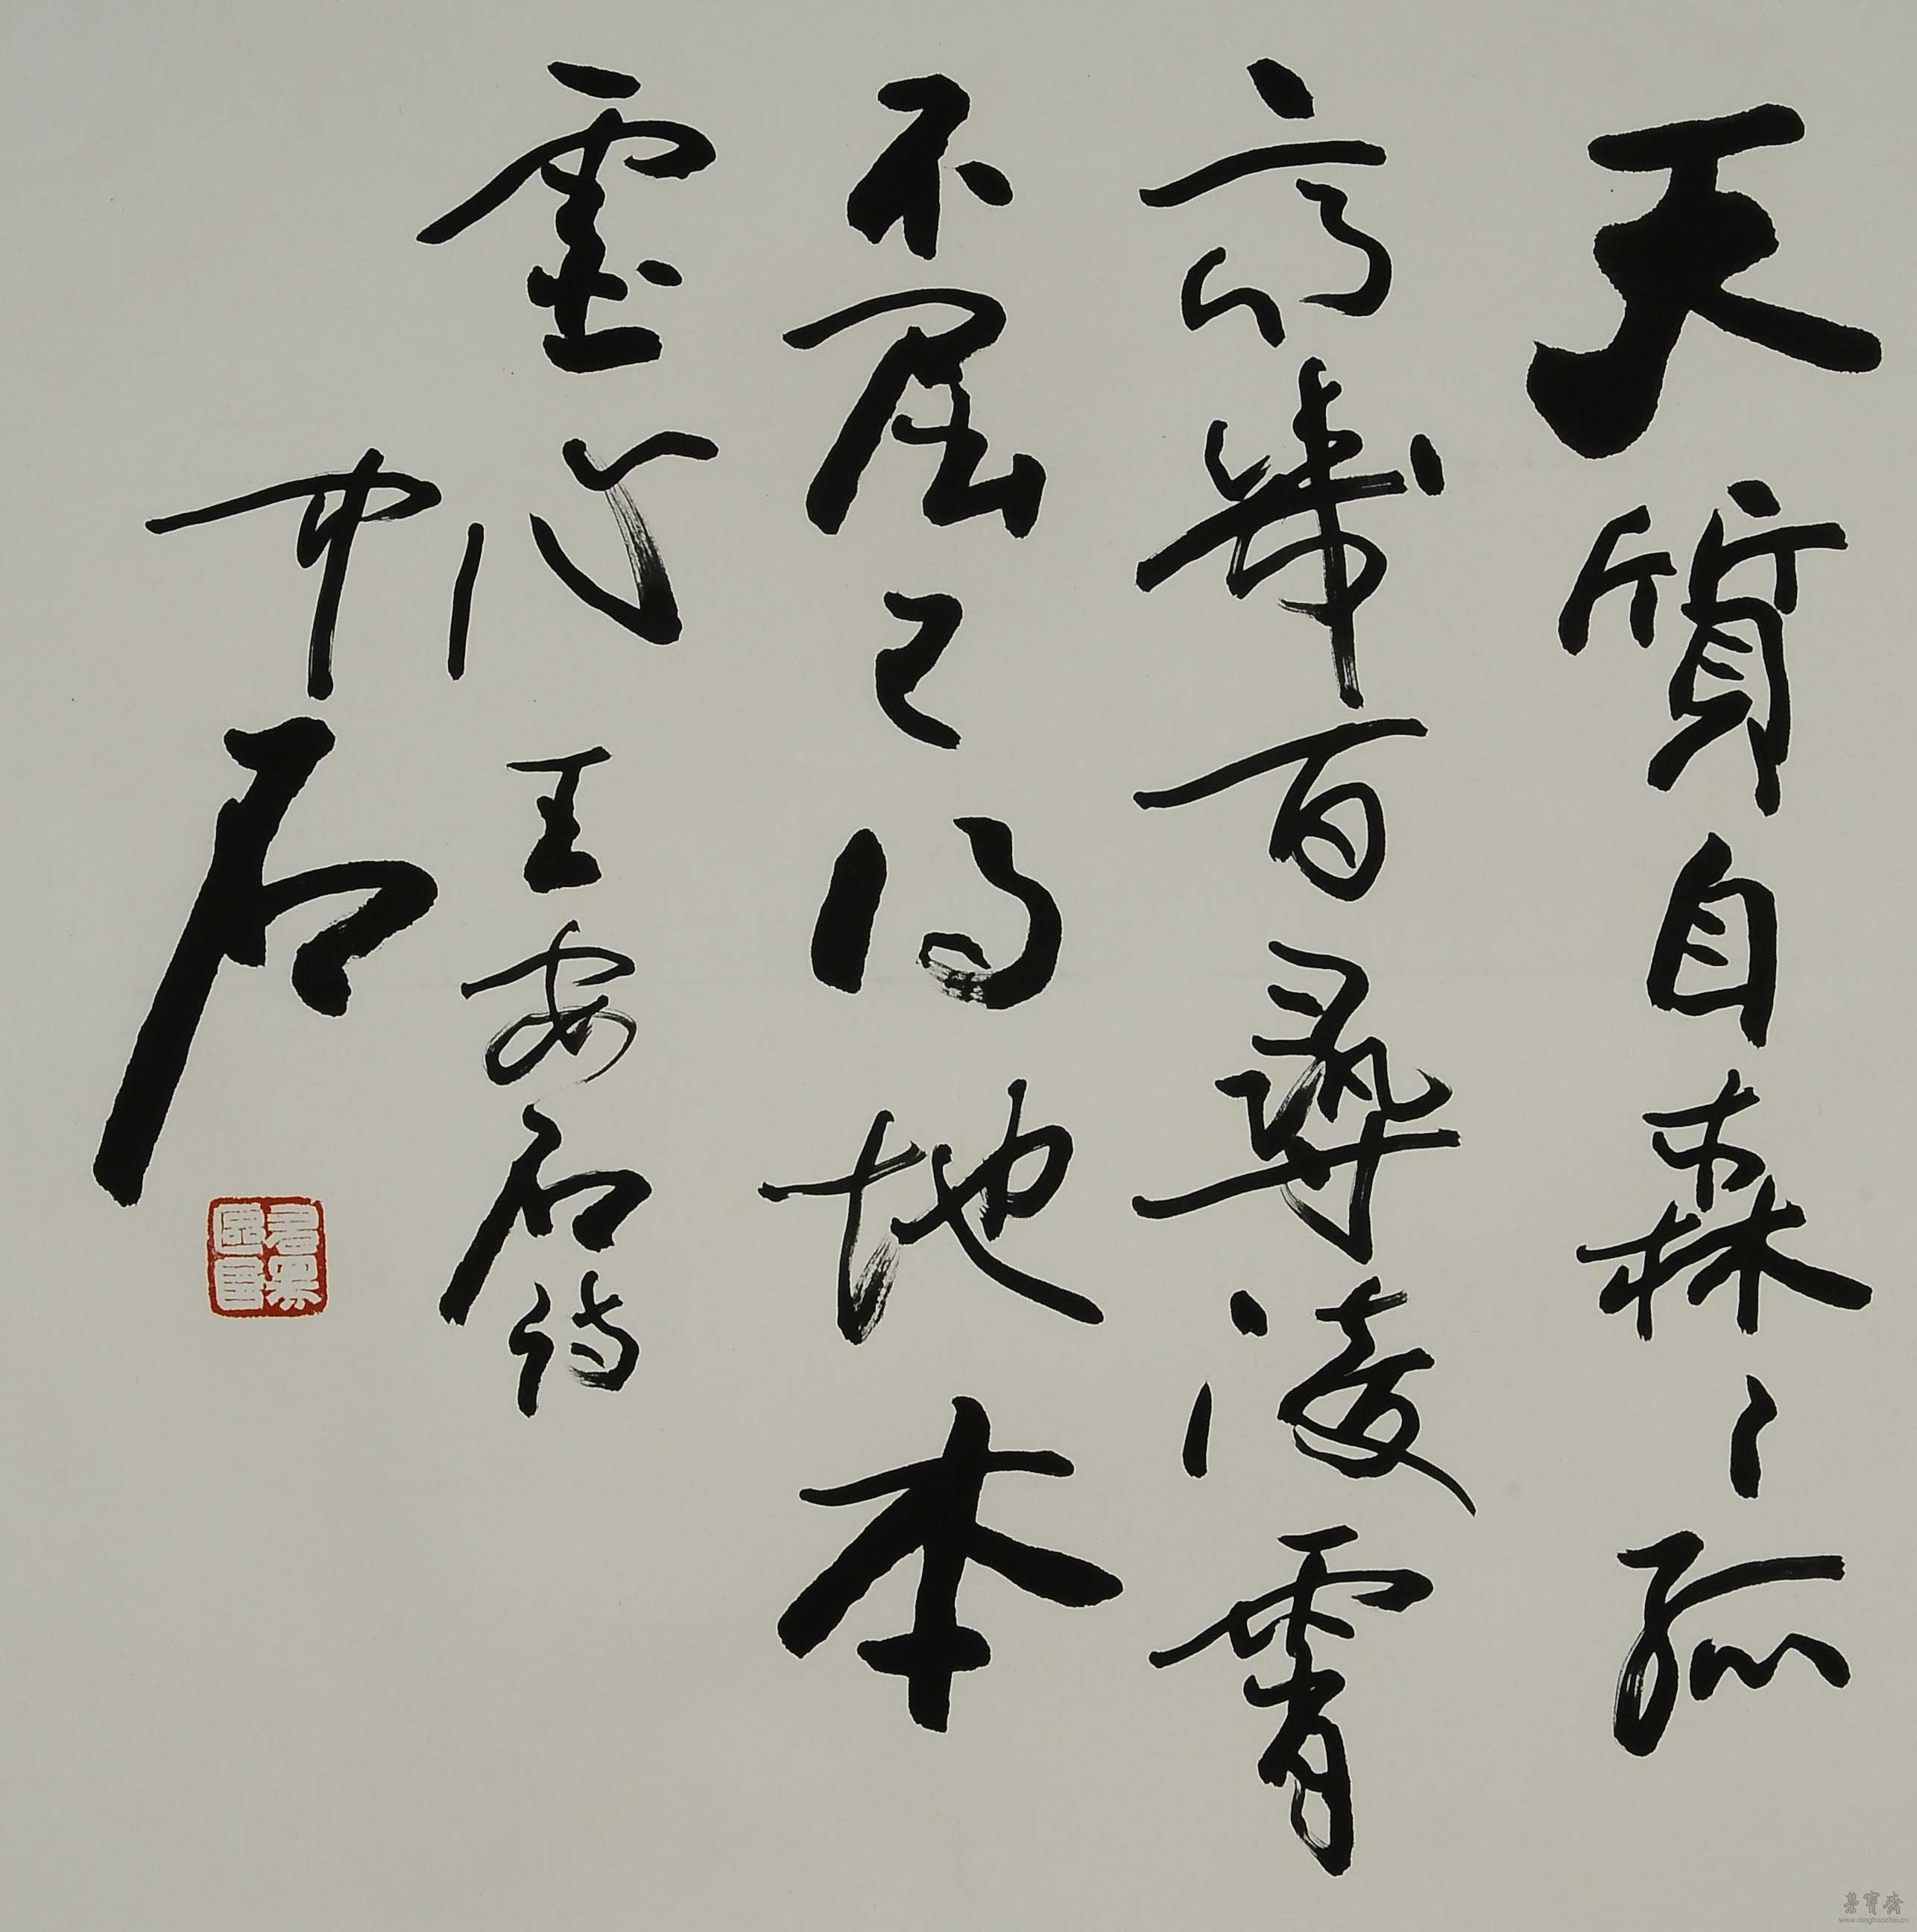 天質自森〻孤
高幾百尋凌霄
不屈已得地本
虛心 王安石詩
中石
榮寶齋
www.rongbaozhai.cn